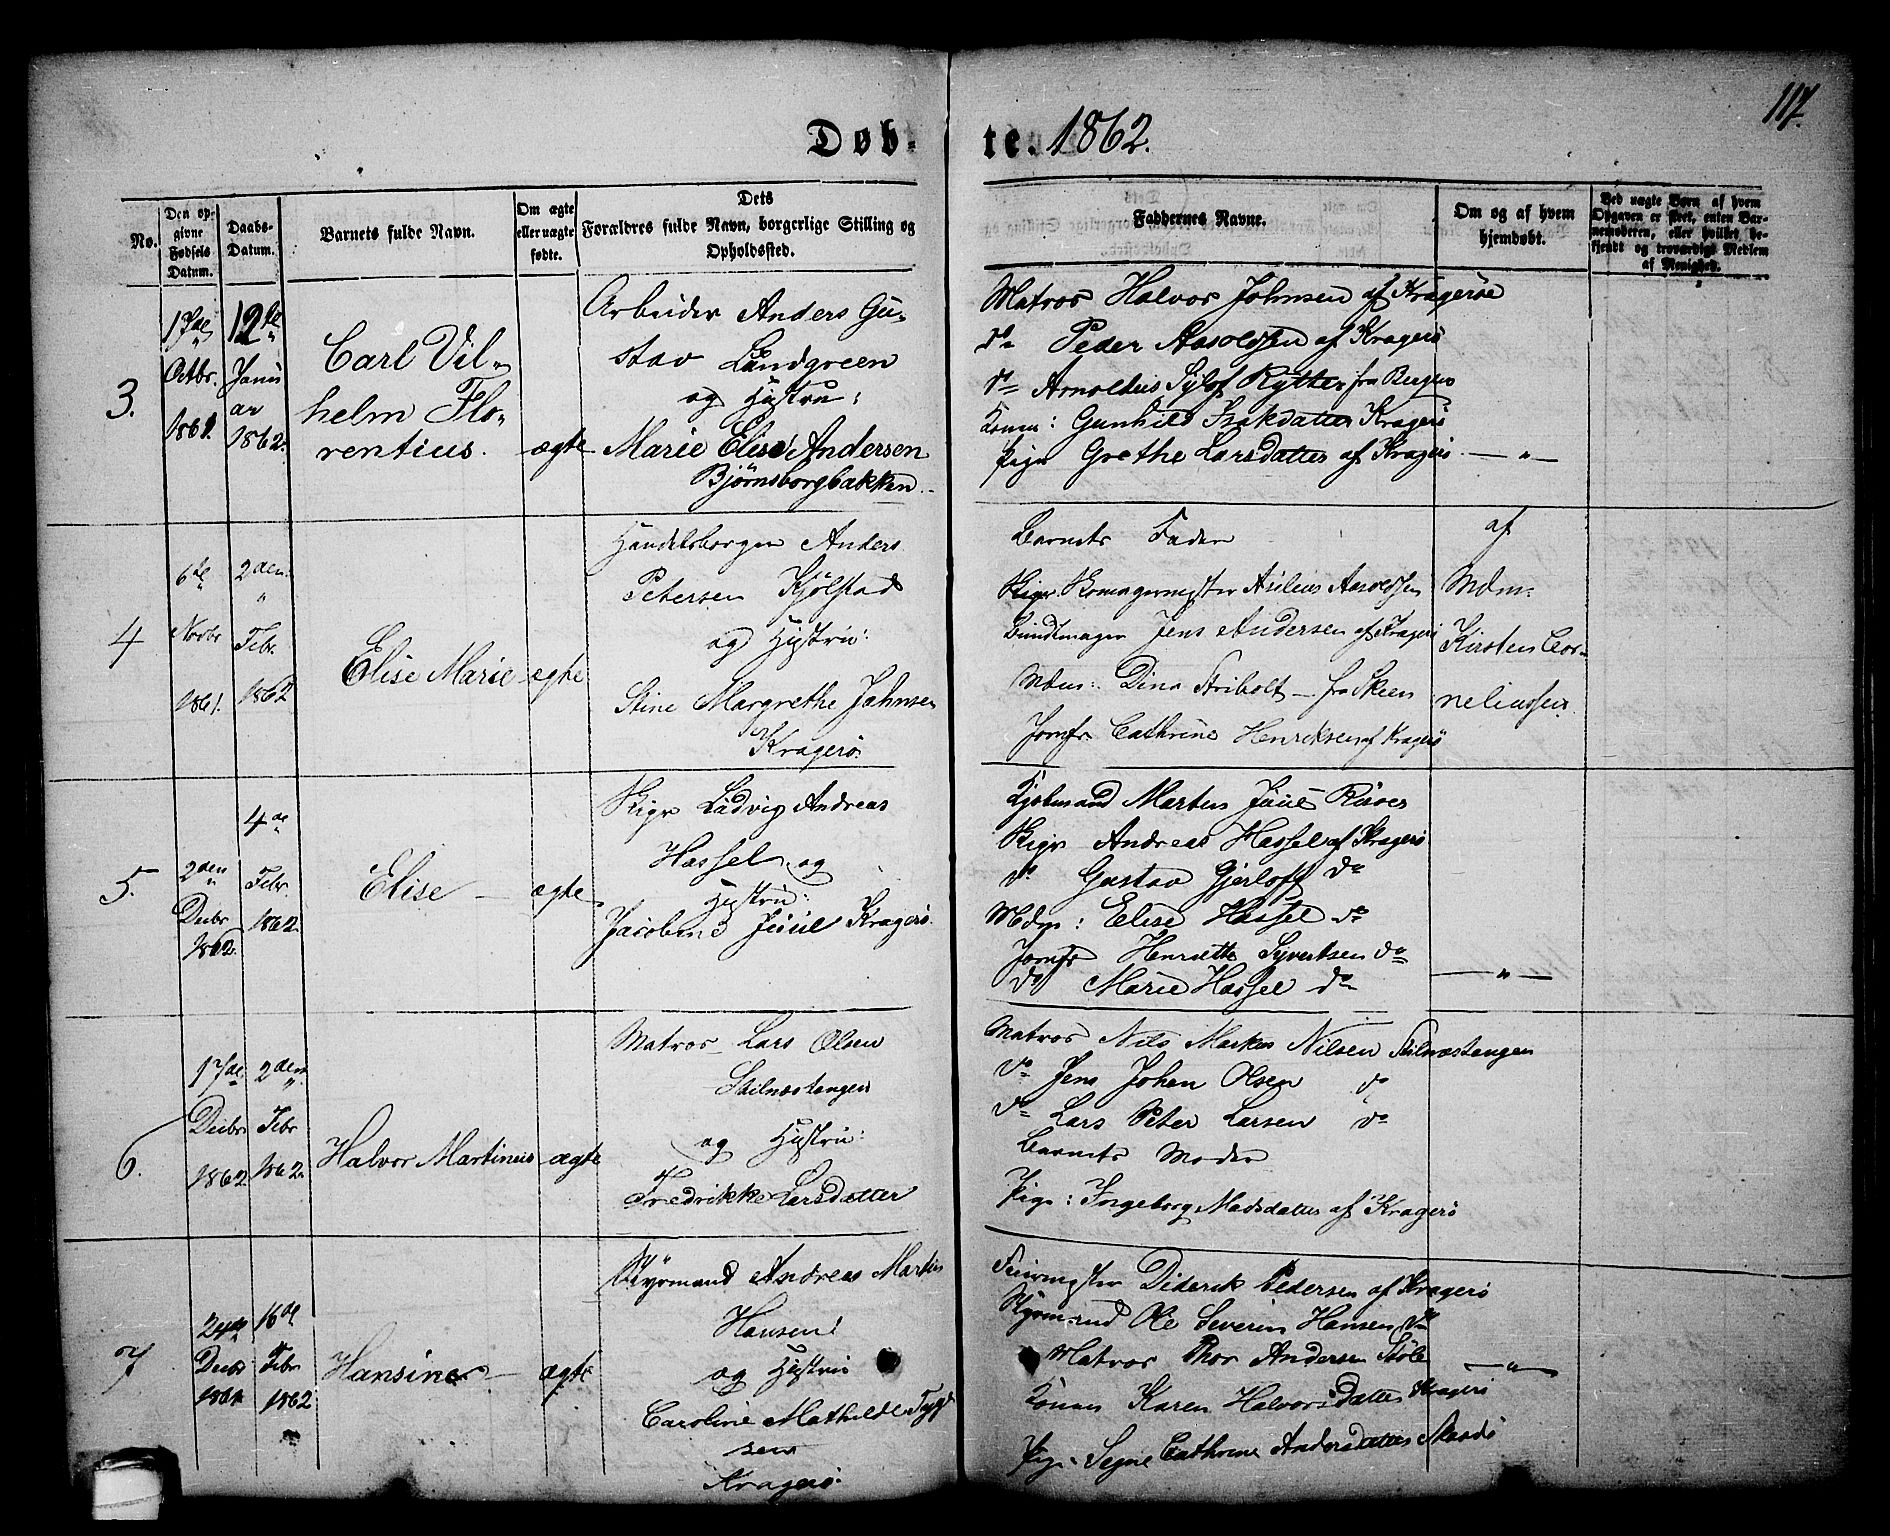 117.
Døb- te. 1862.
No.
Den op-
givne
Fødsels
Datum.
Daabs-
Datum.
Barnets fulde Navn.
Om ægte
eller uægte
fødte.
Dets
Forældres fulde Navn, borgerlige Stilling og
Opholdssted.
Faddernes Navne.
Om og af hvem
hjemdøbt.
Ved uægte Børn af hvem
Opgaven er skeet, enten Bar-
nemoderen, eller hvilket be-
kjendt og troværdigt Medlem
af Menighed.
3.
17de
Octbr.
1861.
12te
Janu
ar
1862.
Carl Vil-
helm Flo-
rentius.
ægte
Arbeider Anders Gu-
stav Lundgreen
og Hustru:
Marie Elise Andersen
Bjørnsborgbakken.
Matros Halvor Johnsen af Kragerøe
do Peder Aasoldsen af Kragerö
do Arnoldus Rytter fra Bergen
Konen: Gunhild Isakdatter Kragerö
Pige Grethe Larsdatter af Kragerö. — " —
4
6te
"
Novbr
1861.
2den
"
Febr.
1862
Elise Marie
ægte
Handelsborger Anders
Petersen Kjölstad
og Hustru:
Stine Margrethe Johnsen
Kragerö.
Barnets Fader
Skomagermester Asoldsen
Bundtmager Jens Andersen af Kragerö
Mdm: Dina Stribolt — fra Skeen
Jomfr Cathrine Henriksen af Kragerö
af
Mdm.
Kirsten Cor-
neliussen.
5.
2den
"
Decbr
1862.
4de
Febr.
1862.
Elise —
ægte
Skipr Ludvig Andreas
Hassel og
Hustru:
Jacobine Juul Kragerö.
Kjøbmand Martin Juul
Skipr Andreas Hassel af Kragerö
do Gustav Gjerloff do
Mdm: Elise Hassel do
Jomfr Henriette Syvertsen do
do Marie Hassel do
— " —
6.
17de
Decbr
1862
2den
"
Febr
1862.
Halvor Martinius
ægte
Matros Lars Olsen
Stilnæstangen
og Hustru:
Fredrikke Larsdatter
Matros Nils Markus Nilsen Stilnæstangen
do Jens Johan Olsen do
do Lars Peter Larsen do
Barnets Moder
Pige: Ingeborg Madsdatter af Kragerö
7
24de
Decbr
1861
16de
Febr
1862
Hansine —
ægte
Styrmand Andreas Martin
Hansen
og Hustru
Caroline Mathilde Tyge
sen
Kragerö.
Feiermester Diderik Pedersen af Kragerö
Styrmand Ole Severin Hansen do
Matros Thor Andersen Støle
— " —
Konen Karen Halvorsdatter Kragerö
Pige. Signe Cathrine Andersdatter